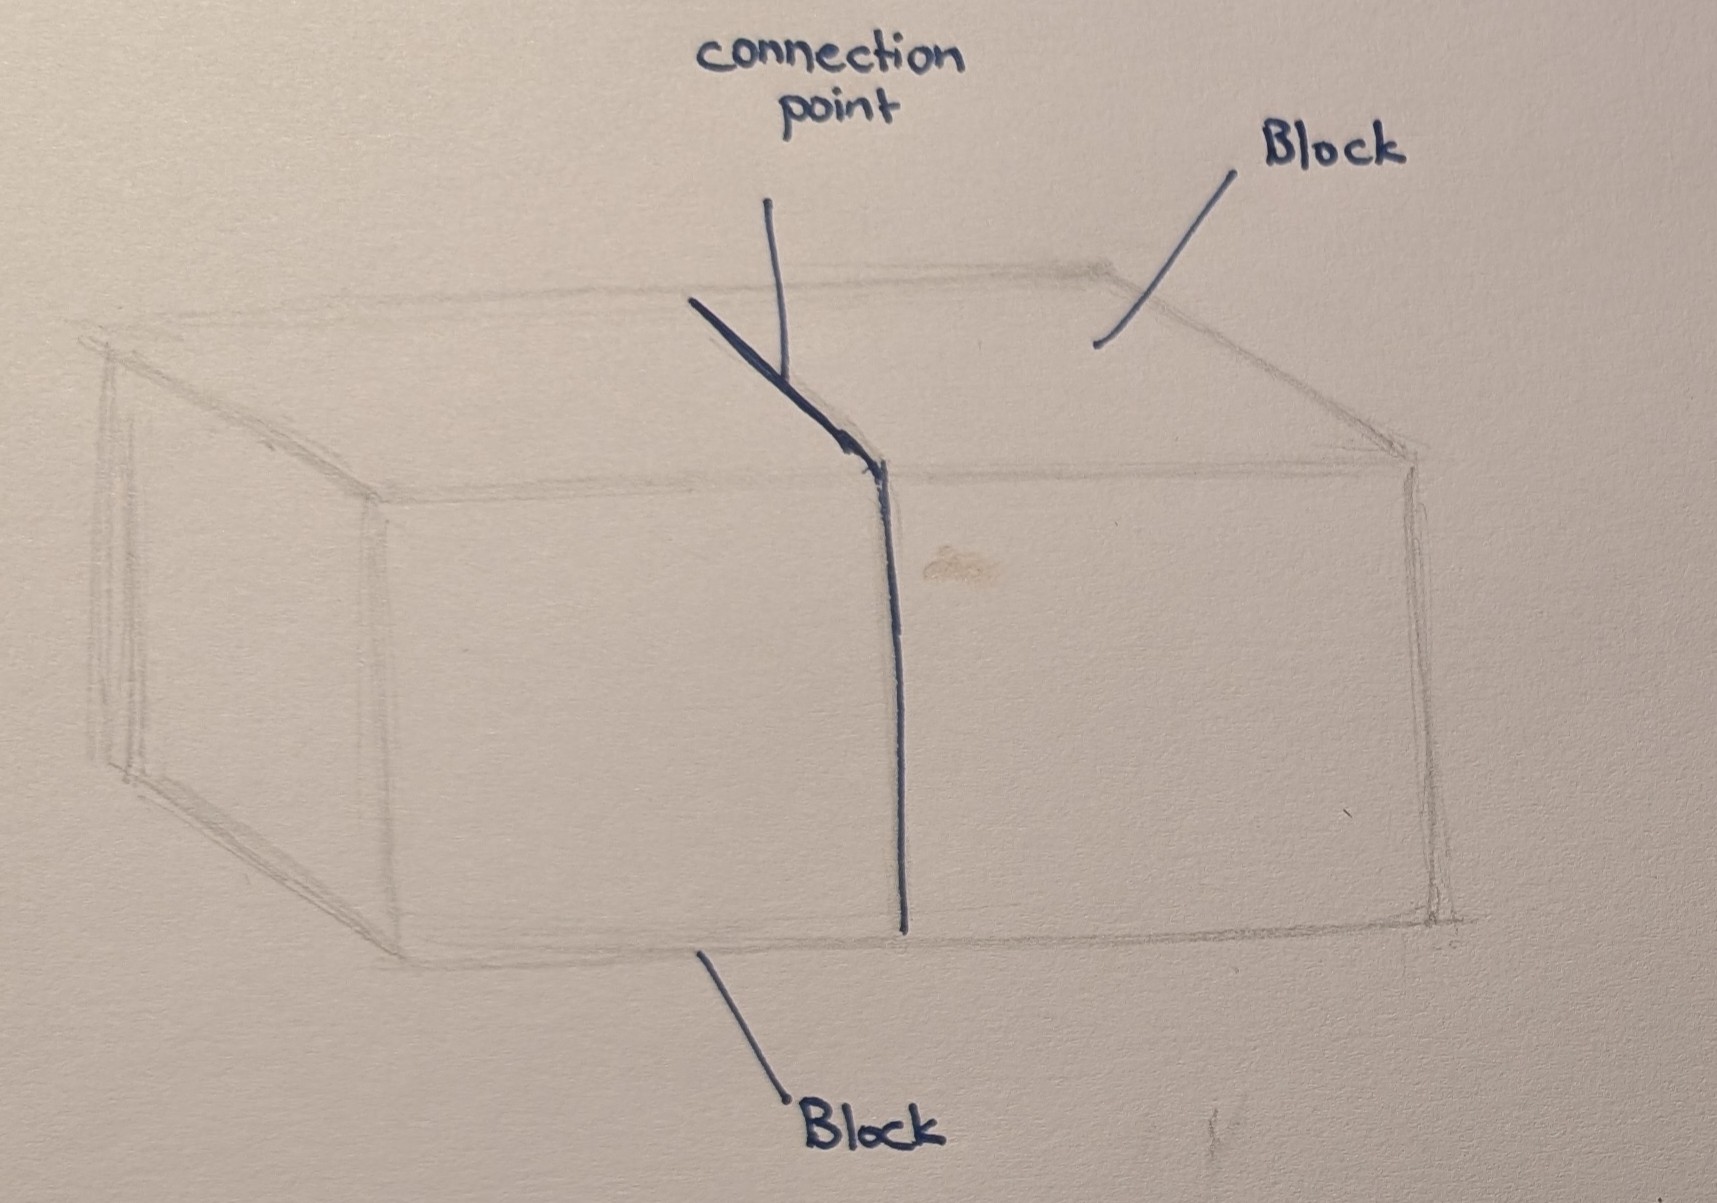 connection
point
Block
Block